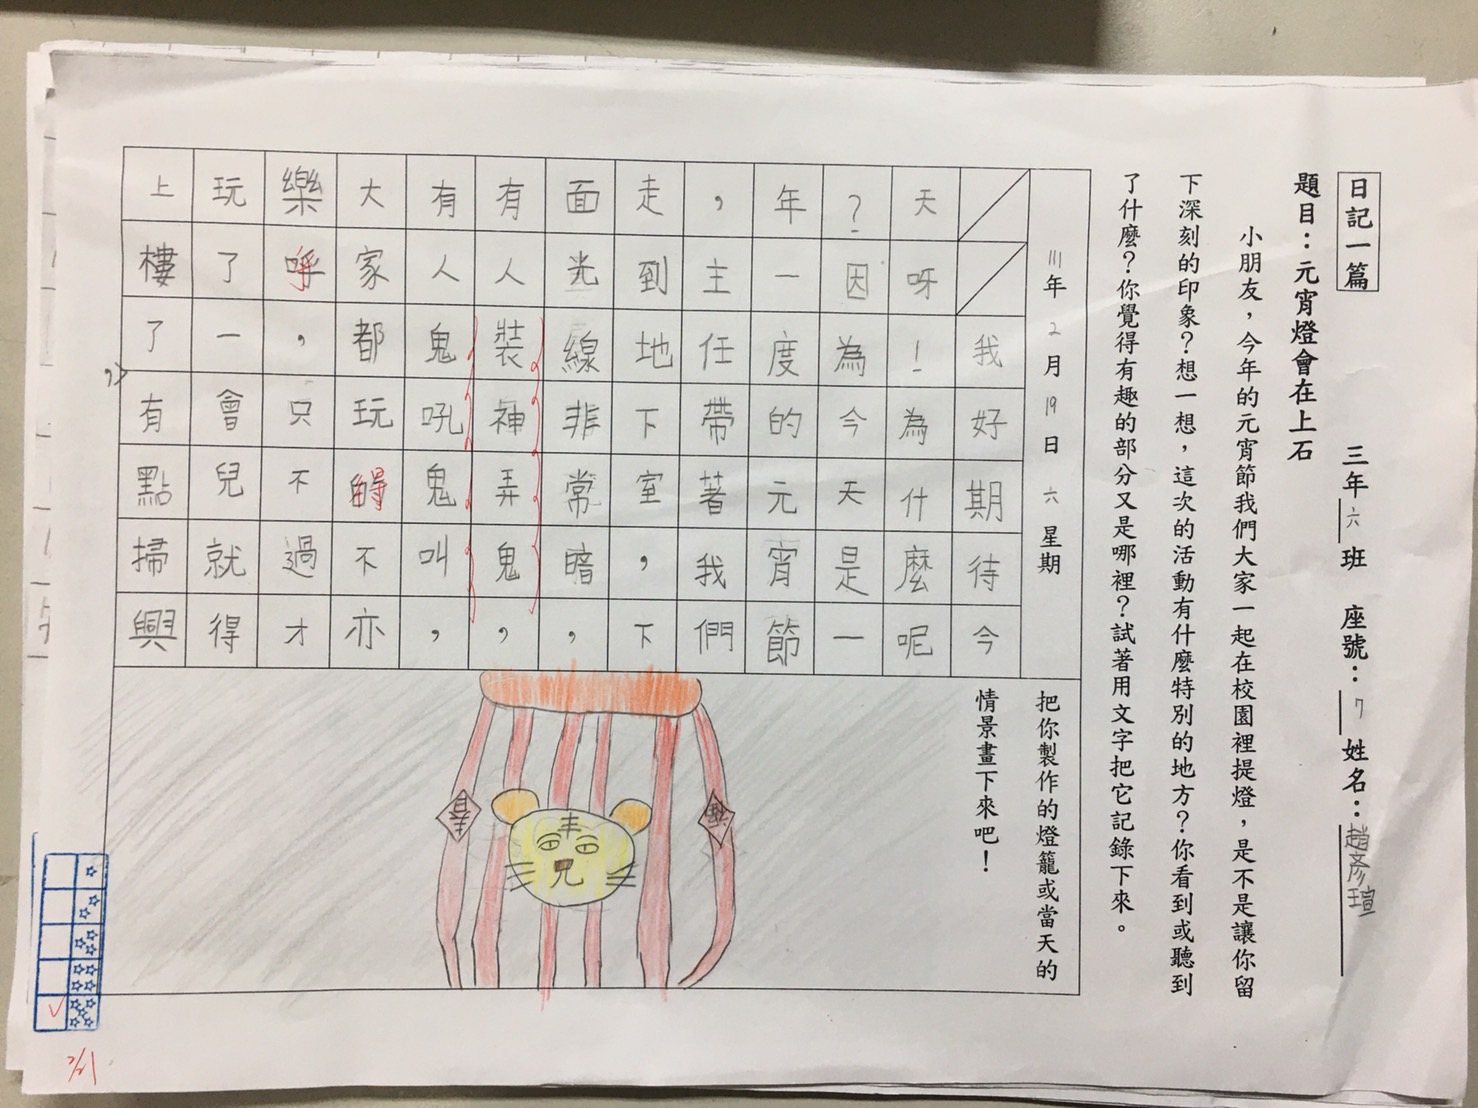 日記一篇
三年六班 座號：7 姓名：趙彥瑄
題目：元宵燈會在上石
小朋友，今年的元宵節我們大家一起在校園裡提燈，是不是讓你留
下深刻的印象？想一想，這次的活動有什麼特別的地方？你看到或聽到
了什麼？你覺得有趣的部分又是哪裡？試著用文字把它記錄下來。
111年2月19日六星期
我好期待今
天呀！為什麼呢
？因為今天是一
年一度的元宵節
，主任帶著我們
走到地下室，下
面光線非常暗，
有人裝神弄鬼，
有人鬼吼鬼叫，
大家都玩得不亦
樂乎，只不過才
玩了一會兒就得
上樓了，有點掃興
把你製作的燈籠或當天的
情景畫下來吧！
春
2/21